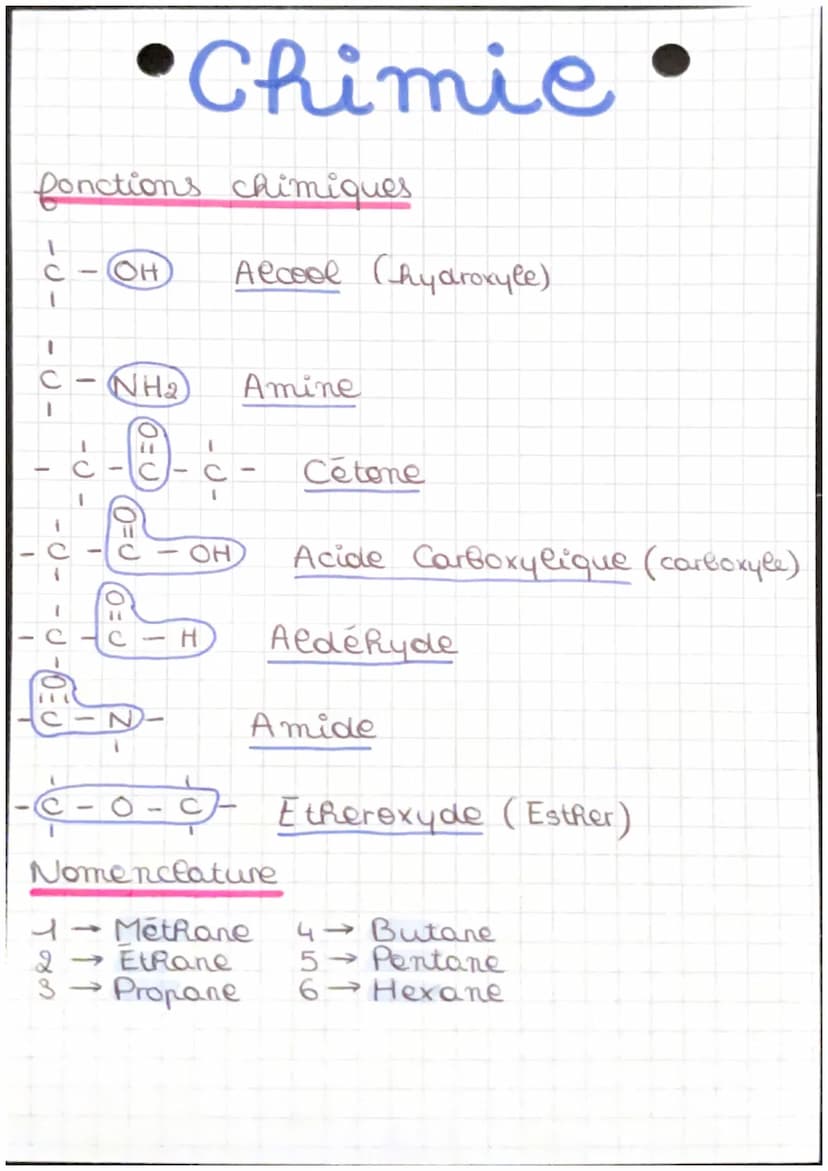 Chimie
fonctions chimiques
C - OH Alcool (hydroxyle)
C - NH2 Amine
O
- C - C - C - Cétone
O
- C - C - OH Acide Carboxylique (carboxyle)
O
- C - C - H Aldéhyde
O
- C - N - Amide
- C - O - C - Étheroxyde (Esther)
Nomenclature
1 → Méthane 4 → Butane
2 → Éthane 5 → Pentane
3 → Propane 6 → Hexane